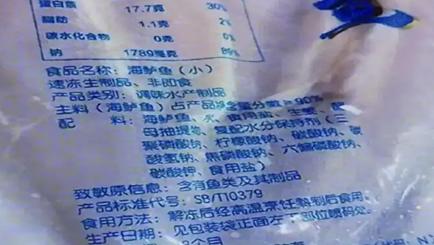 蛋白质 17.7克 30%
脂肪 1.1克 2%
碳水化合物 0克 0%
钠 1789毫克 89%
食品名称：海鲈鱼（小）
速冻生制品、非即食
产品类别：调味水产制品
主料（海鲈鱼）占产品净含量分数≥90%
配 料：海鲈鱼、水、食用盐、生姜、酵
母抽提物、复配水分保持剂（三
聚磷酸钠、柠檬酸钠、碳酸钠、碳
酸氢钠、焦磷酸钠、六偏磷酸钠、
碳酸钾、食用盐）
致敏原信息：含有鱼类及其制品
产品标准代号：SB/T10379
食用方法：解冻后经高温烹饪熟制后食用
生产日期：见包装袋正面左下部位喷码处
个月